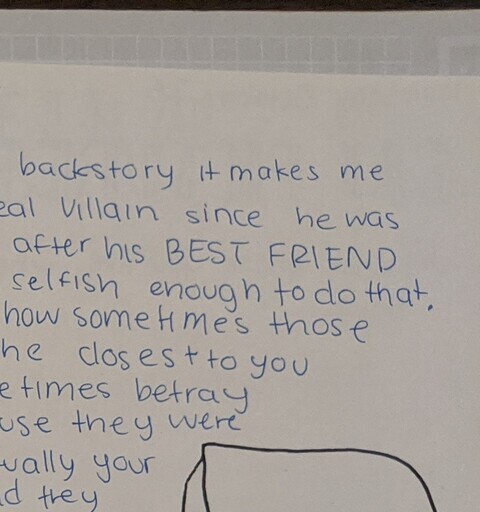 backstory it makes me
eal Villain since he was
after his BEST FRIEND
selfish enough to do that.
how sometimes those
he closest to you
etimes betray
use they were
ually your
d they